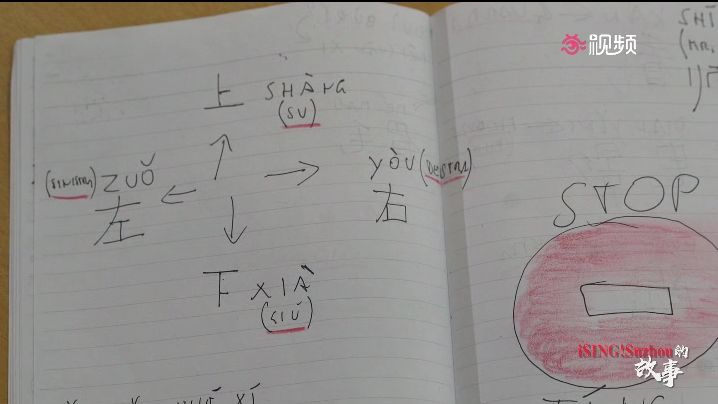 视频
上 SHÀNG
(SU)
(SINISTRA) ZUǑ
左
YÒU (DESTRA)
右
下 XIÀ
(GIÙ)
SHĪ
STOP
iSING!Suzhou的
故事